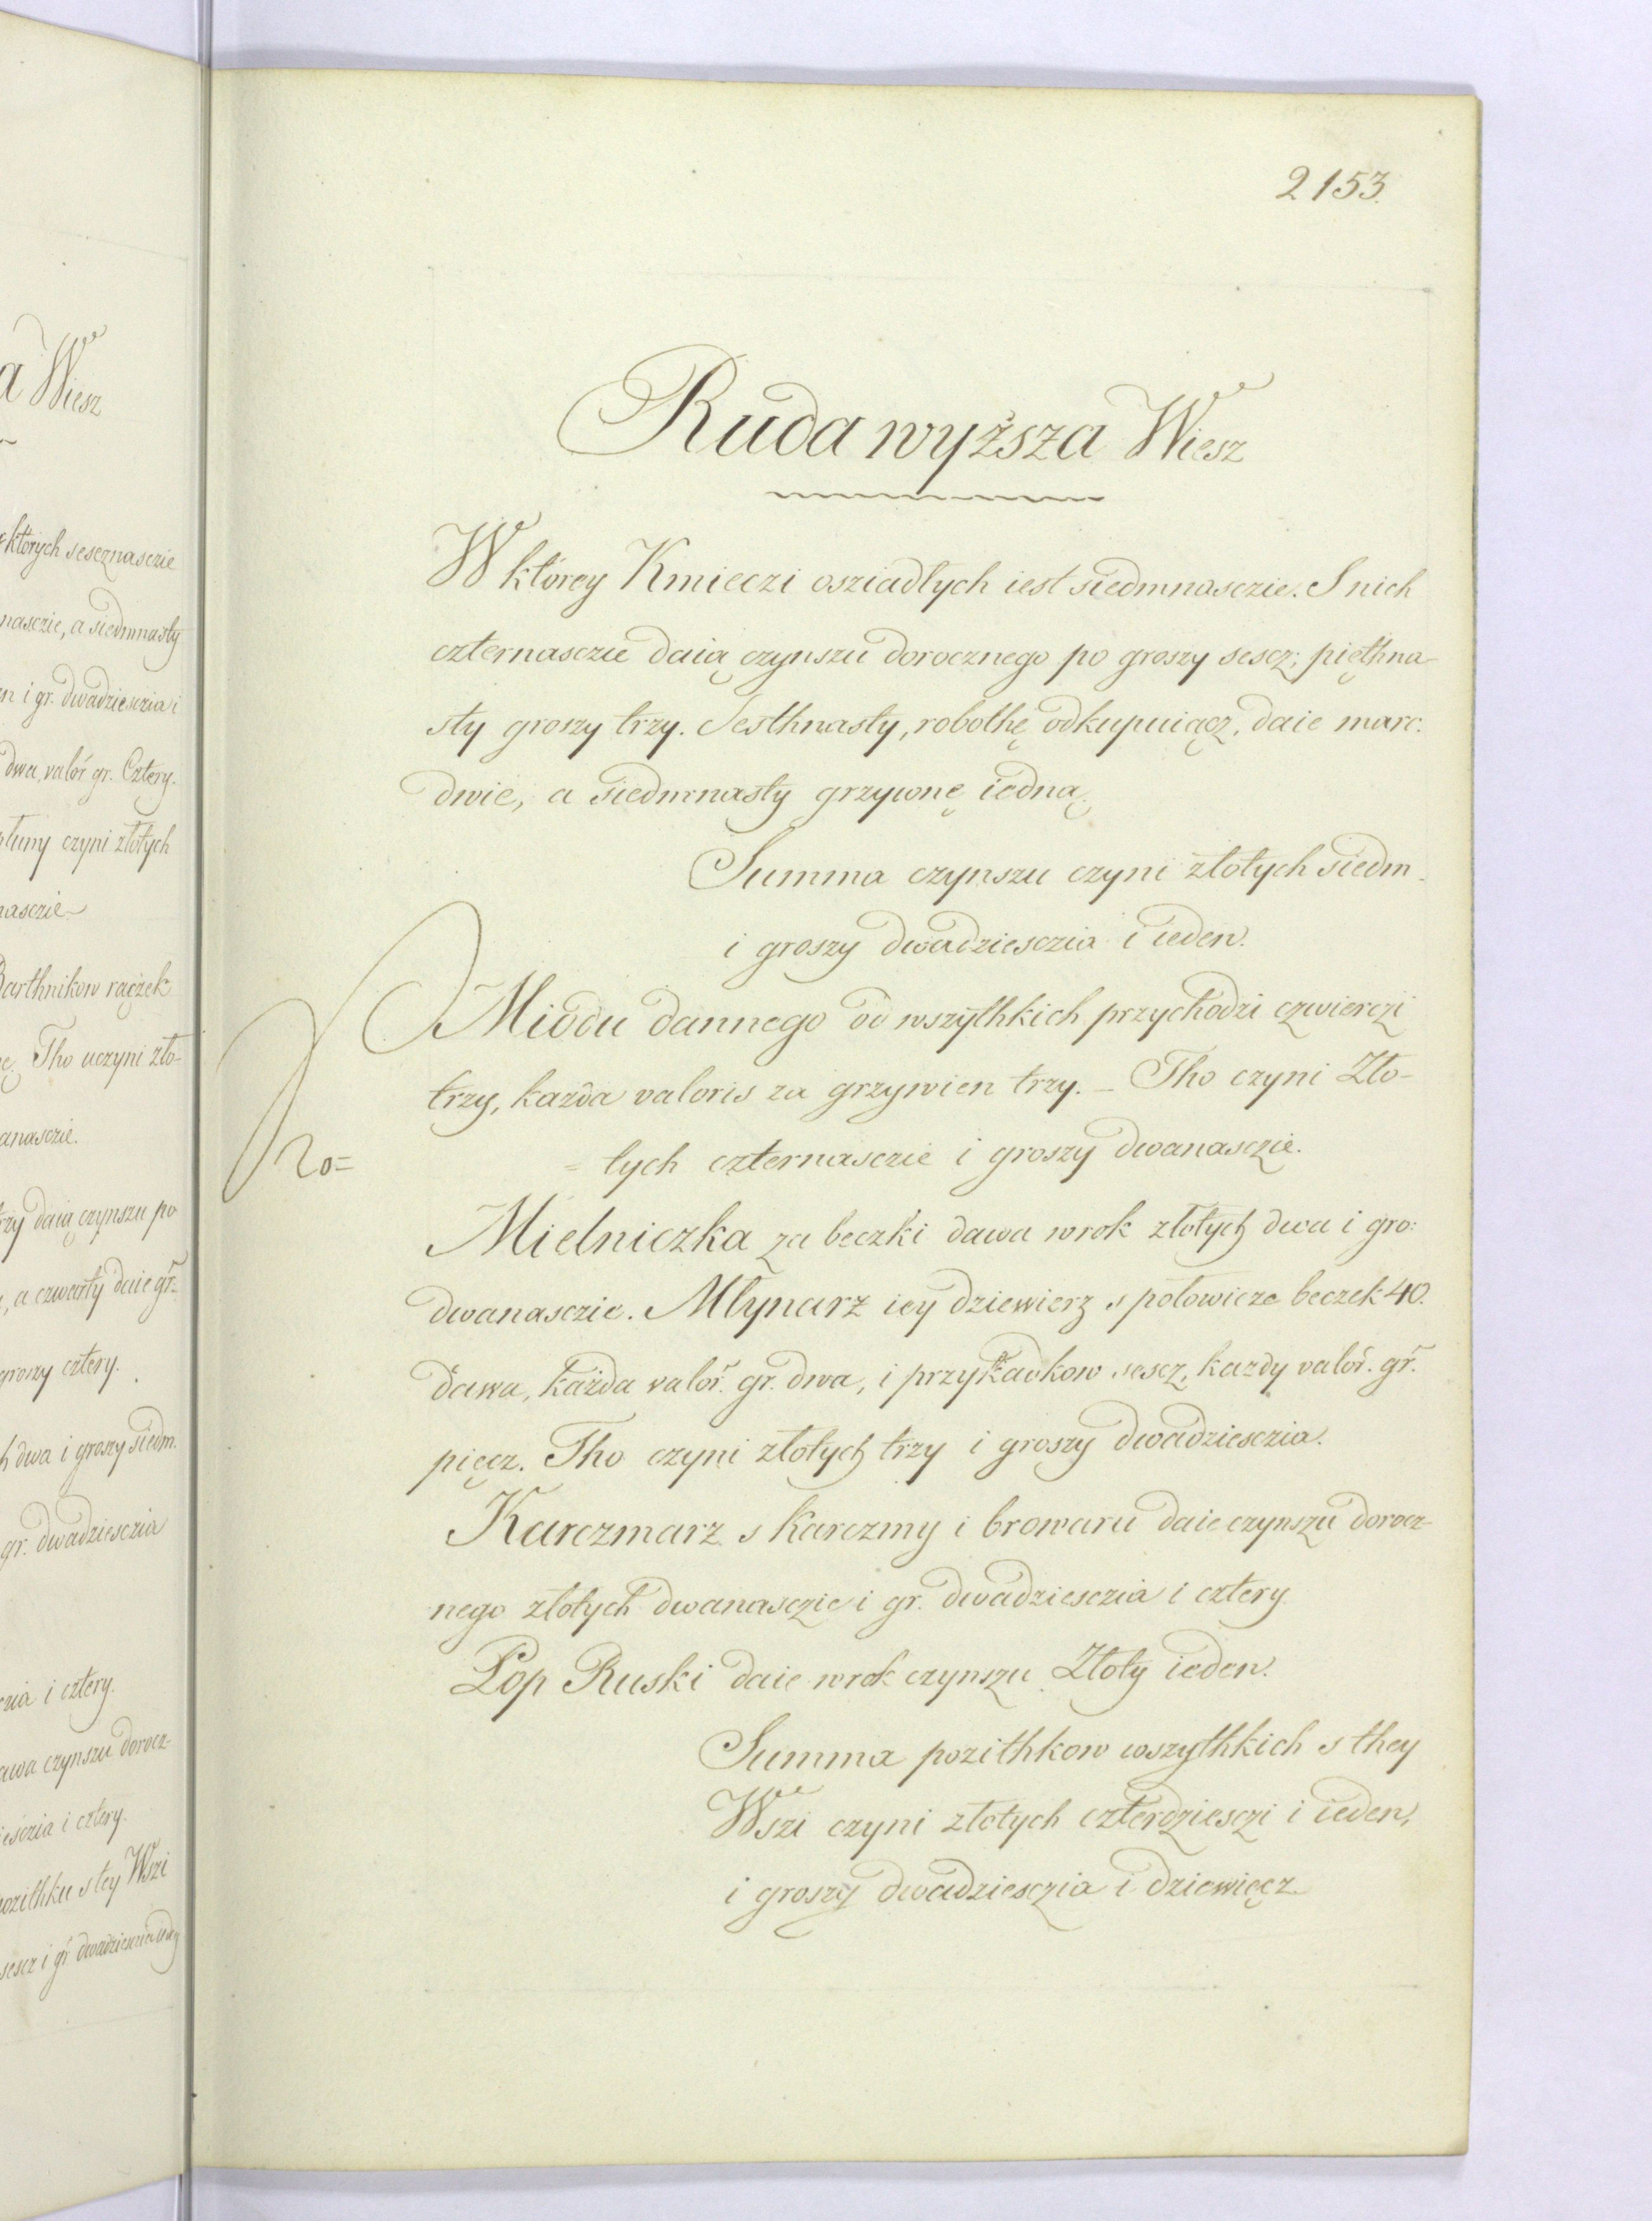 2153.
Ruda wyższa Wiesz
W którey Kmieczi osziadłych iest siedmnasczie. S nich
czternasczie daią czynszu dorocznego po groszy sescz; pięthna-
sty groszy trzy. Sesthnasty, robothę odkupuiącz, daie marc.
dwie, a siedmnasty grzywnę iedną.
Summa czynszu czyni złotych siedm
i groszy dwadziesczia i ieden.
Miodu dannego od wszythkich przychodzi czwierczi
trzy, każda valoris za grzywien trzy. – Tho czyni Zło-
= tych czternasczie i groszy dwanasczie.
Mielniczka za beczki dawa wrok złotych dwa i gro:
dwanasczie. Młynarz iey dziewierz s połowicze beczek 40.
dawa, każda valor. gr. dwa, i przykadkow sescz, kazdy valor. gr.
pięcz. Tho czyni złotych trzy i groszy dwadziesczia.
Karczmarz s karczmy i browaru daie czynszu dorocz-
nego złotych dwanasczie i gr. dwadziesczia i cztery.
Pop Ruski daie wrok czynszu Złoty ieden.
Summa pozithkow wszythkich s they
Wszi czyni złotych czterdziesczi i ieden,
i groszy dwadziesczia i dziewięcz.
a Wiesz
których sescznasczie
nasczie, a siedmnasty
i gr. dwadziesczia i
dwa, valor gr. Cztery.
czyni złotych
nasczie
Barthnikow rączek
Tho uczyni zło-
anasczie.
daią czynszu po
a czwarty daie gr.
groszy cztery.
dwa i groszy siedm.
gr. dwadziesczia
i cztery.
czynszu dorocz-
i cztery.
pozithku s tey Wszi
i gr